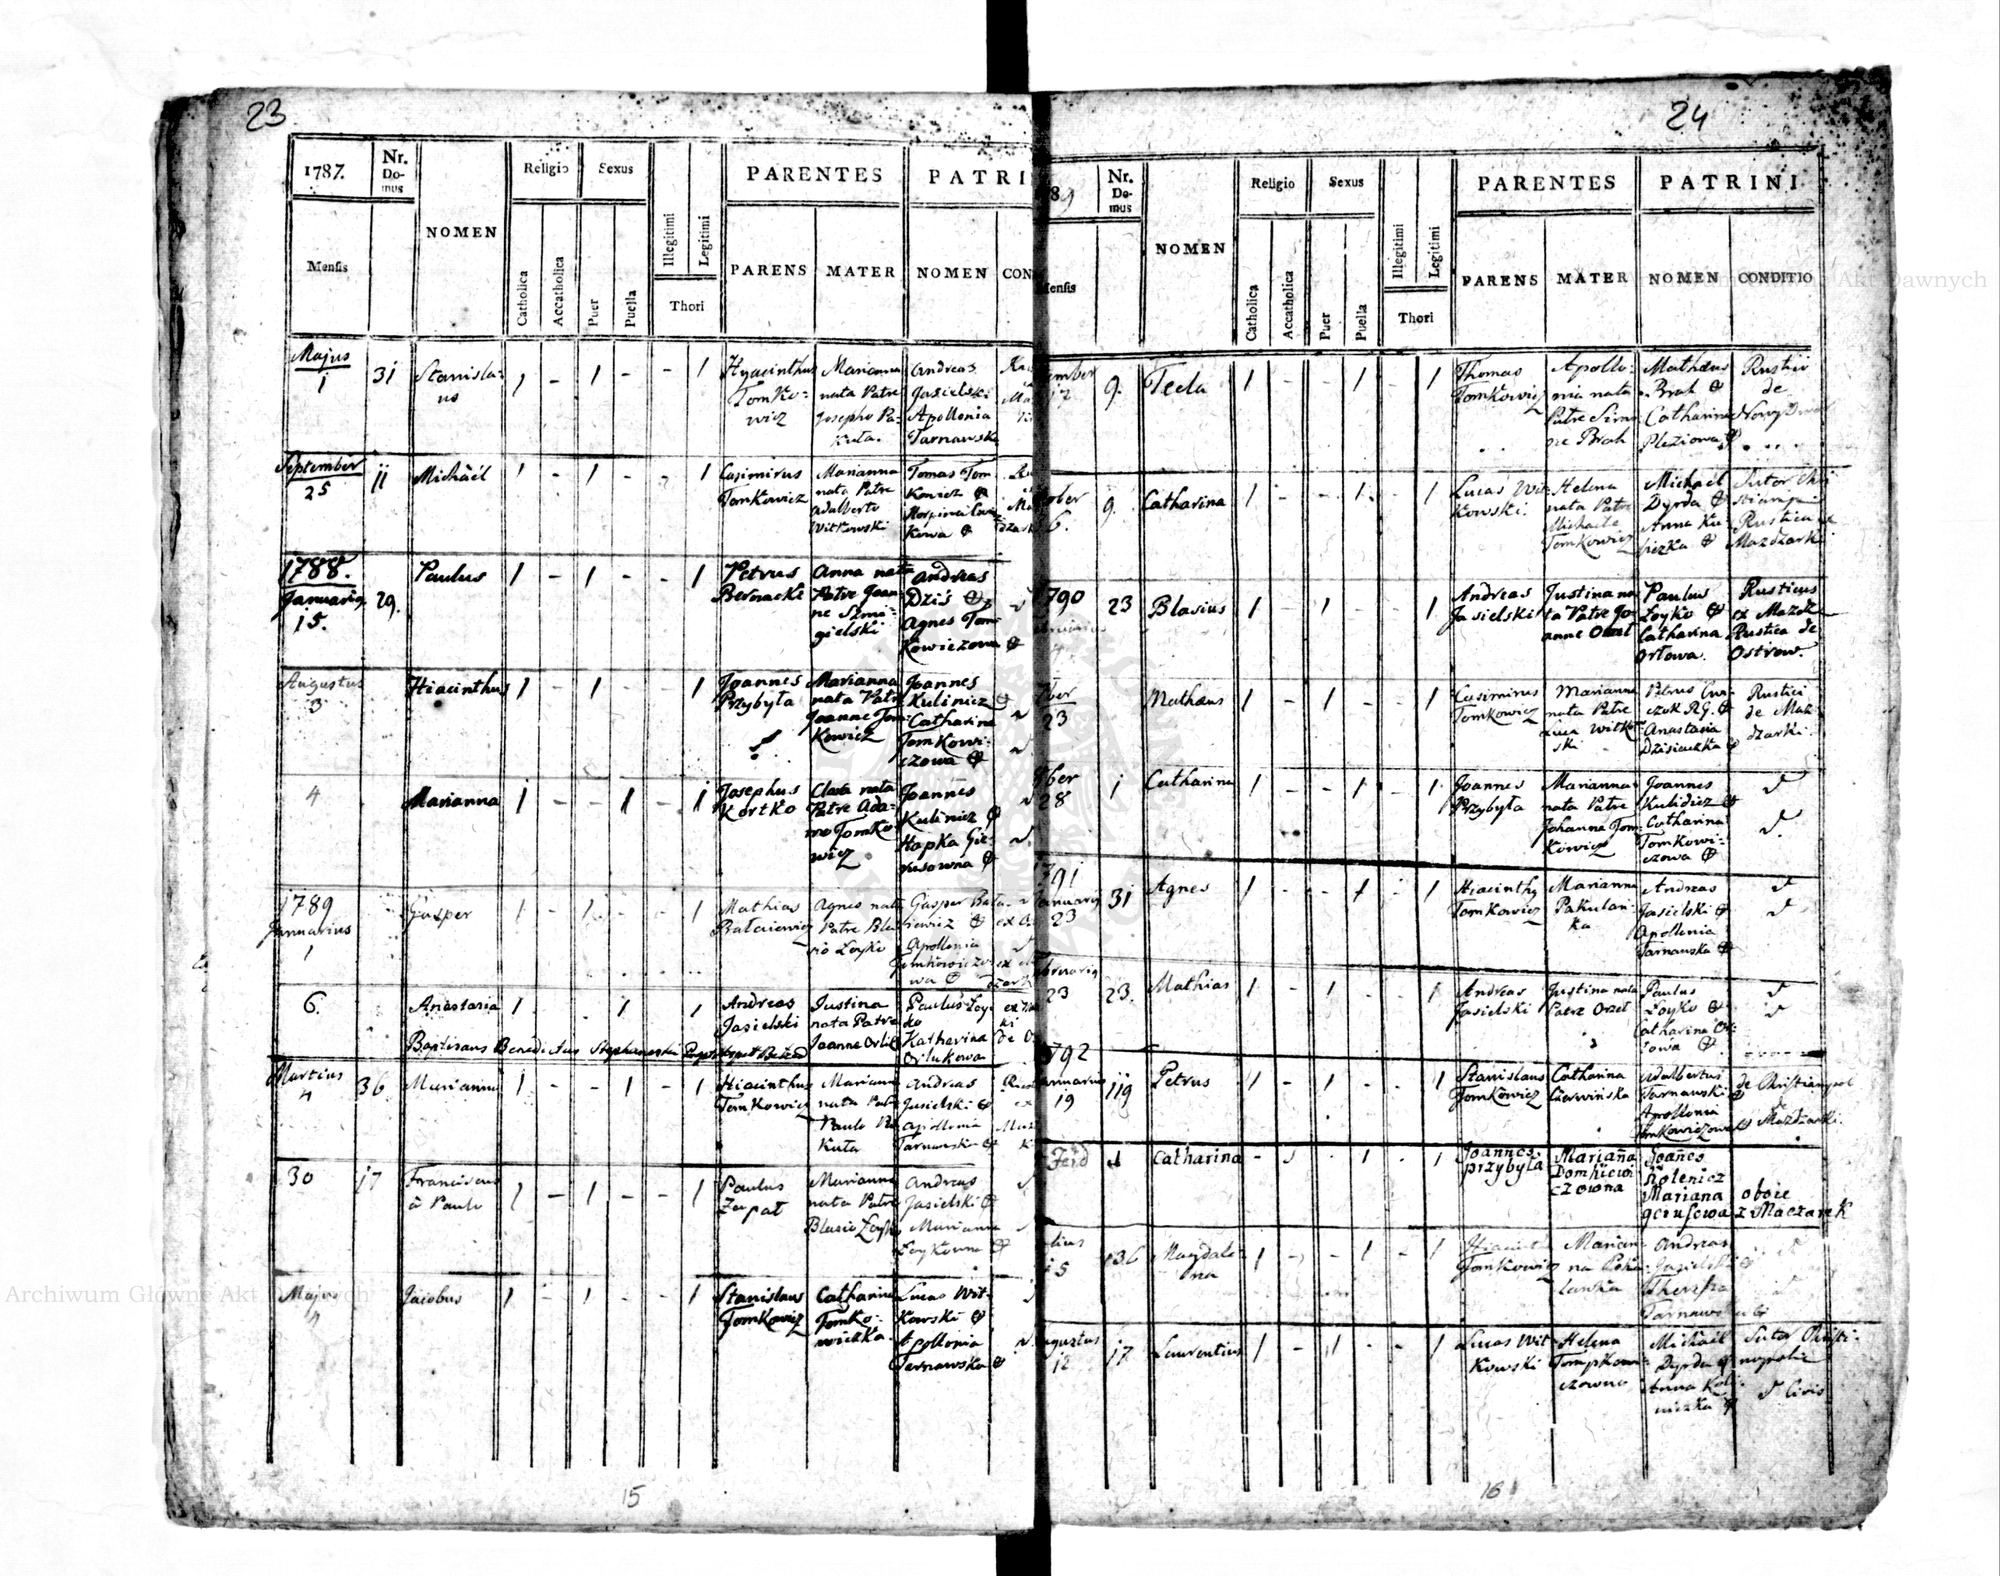 23
1787.
Nr. Domus
NOMEN
Religio
Sexus
Illegitimi
Legitimi
PARENTES
PATRI
Mensis
Catholica
Accatholica
Puer
Puella
Thori
PARENS
MATER
NOMEN
CON
Majus
1
31
Stanisla-
us
1 - 1 - - 1
Hyacinthus
Tomko-
wicz
Marianna
nata Patre
Josepho Pa-
kuła.
Andreas
Jasielski
Apollonia
Tarnawska
September
25
11
Michaël
1 - 1 - - 1
Casimirus
Tomkowicz
Marianna
nata Patre
Adalberto
Witkowski
Tomas Tom
kowicz
1788.
Januarius
15.
29.
Paulus
1 - 1 - - 1
Petrus
Bernacki
Anna nata
Patre Joan
ne Szmi-
gielski
Andreas
Dziś
Agnes Tom
kowiczowa
Augustus
3
Hiacinthus
1 - 1 - - 1
Joannes
Przybyła
Marianna
nata Patre
Joanne Tom-
kowicz
Joannes
Kulinicz
Catharina
Tomkowi-
czowa
4
Marianna
1 - - 1 - 1
Josephus
Kortko
Clara nata
Patre Ada-
mo Tomko-
wicz
Joannes
Kulinicz
Hapka Gie-
rusowna
1789
Januarius
1
Gasper
1 - 1 - - 1
Mathias
Bałaiewicz
Agnes nata
Patre Bla-
sio Łoyko
Gasper Bała-
iewicz
Apollonia
Tomkowiczo-
wa
6.
Anastasia
1 1 1
Andreas
Jasielski
Justina
nata Patre
Joanne Orlik
Paulus Łoy-
ko
Katharina
Orlukowa
Baptisans Benedictus Stephanowski
Martius
4
36
Marianna
1 - - 1 - 1
Hiacinthus
Tomkowicz
Marianna
nata Patre
Paulo Pa
kuła
Andreas
Jasielski
Apollonia
Tarnawska
30
17
Franciscus
à Paulo
1 - 1 - - 1
Paulus
Zapał
Marianna
nata Patre
Blasio Łoyko
Andreas
Jasielski
Marianna
Łoykowna
Majus
4
Jacobus
1 - 1 - - 1
Stanislaus
Tomkowicz
Catharina
Tomko-
wiczka.
Lucas Wit-
kowski
Apollonia
Tarnawska
15
24
89
Nr. Domus
NOMEN
Religio
Sexus
Illegitimi
Legitimi
PARENTES
PATRINI
Mensis
Catholica
Accatholica
Puer
Puella
Thori
PARENS
MATER
NOMEN
CONDITIO
ember
12
9.
Tecla
1 - - 1 - 1
Thomas
Tomkowicz
Apollo-
nia nata
Patre Simo
ne Brah
Mathæus
Brah
Catharina
Pleziowa
Rustici
de
Nowy Dwor
ober
6.
9.
Catharina
1 - - 1 - 1
Lucas Wit-
kowski.
Helena
nata Patre
Michaele
Tomkowicz
Michaël
Dyrda
Anna Ku-
Sutor
Rustica
Mazdzarki
1790
23
Blasius
1 - 1 - - 1
Andreas
Jasielski
Justina na
ta Patre Jo-
anne Orzeł
Paulus
Łoyko
Catharina
Orłowa.
Rusticus
ex Mazdz
Rustica de
Ostrow.
7ber
23
Mathæus
1 - 1 - - 1
Casimirus
Tomkowicz
Marianna
nata Patre
Luca Witko
ski
Petrus
Anastasia
Dzisiaczka
Rustici
de Maz-
dzarki.
8ber
28
1
Catharina
1 - - 1 - 1
Joannes
Przybyła
Marianna
nata Patre
Johanne Tom-
kowicz
Joannes
Kulidicz
Catharina
Tomkowi-
czowa
1791
Januarius
23
31
Agnes
1 - - 1 - 1
Hiacinthy
Tomkowicz
Marianna
Pakulan-
ka
Andreas
Jasielski
Apollonia
Tarnawska
Februarius
23
23.
Mathias
1 - 1 - - 1
Andreas
Jasielski
Justina nata
Patre Orzeł
Paulus
Łoyko
Catharina Or-
łowa
1792
Januarius
19
119
Petrus
1 - 1 - - 1
Stanislaus
Tomkowicz
Catharina
Czerwińska
Adalbertus
Tarnawski
Apollonia
Tomkowiczowa
de Christianpol
de Mazdzarki.
Catharina
Joannes
przybyla
Mariana
Domkiewi
czowna
Joanes
Kolenicz
Mariana
gerusewa
oboie
z Maczarek
5
136
Magdale-
na
1 - - 1 - 1
Hiacint
Tomkowicz
Marian-
na Poku-
lanka
Andreas
Jasielski
Theresia
Tarnawska
Augustus
12
17
Laurentius
1 - 1 - - 1
Lucas Wit
kowski
Helena
Tompkowi
czowna
Michaël
Dyrda
Anna Kuli-
niczka
Sutor Christi-
nopolis
Civis
16
Archiwum Główne Akt Dawnych
Akt Dawnych